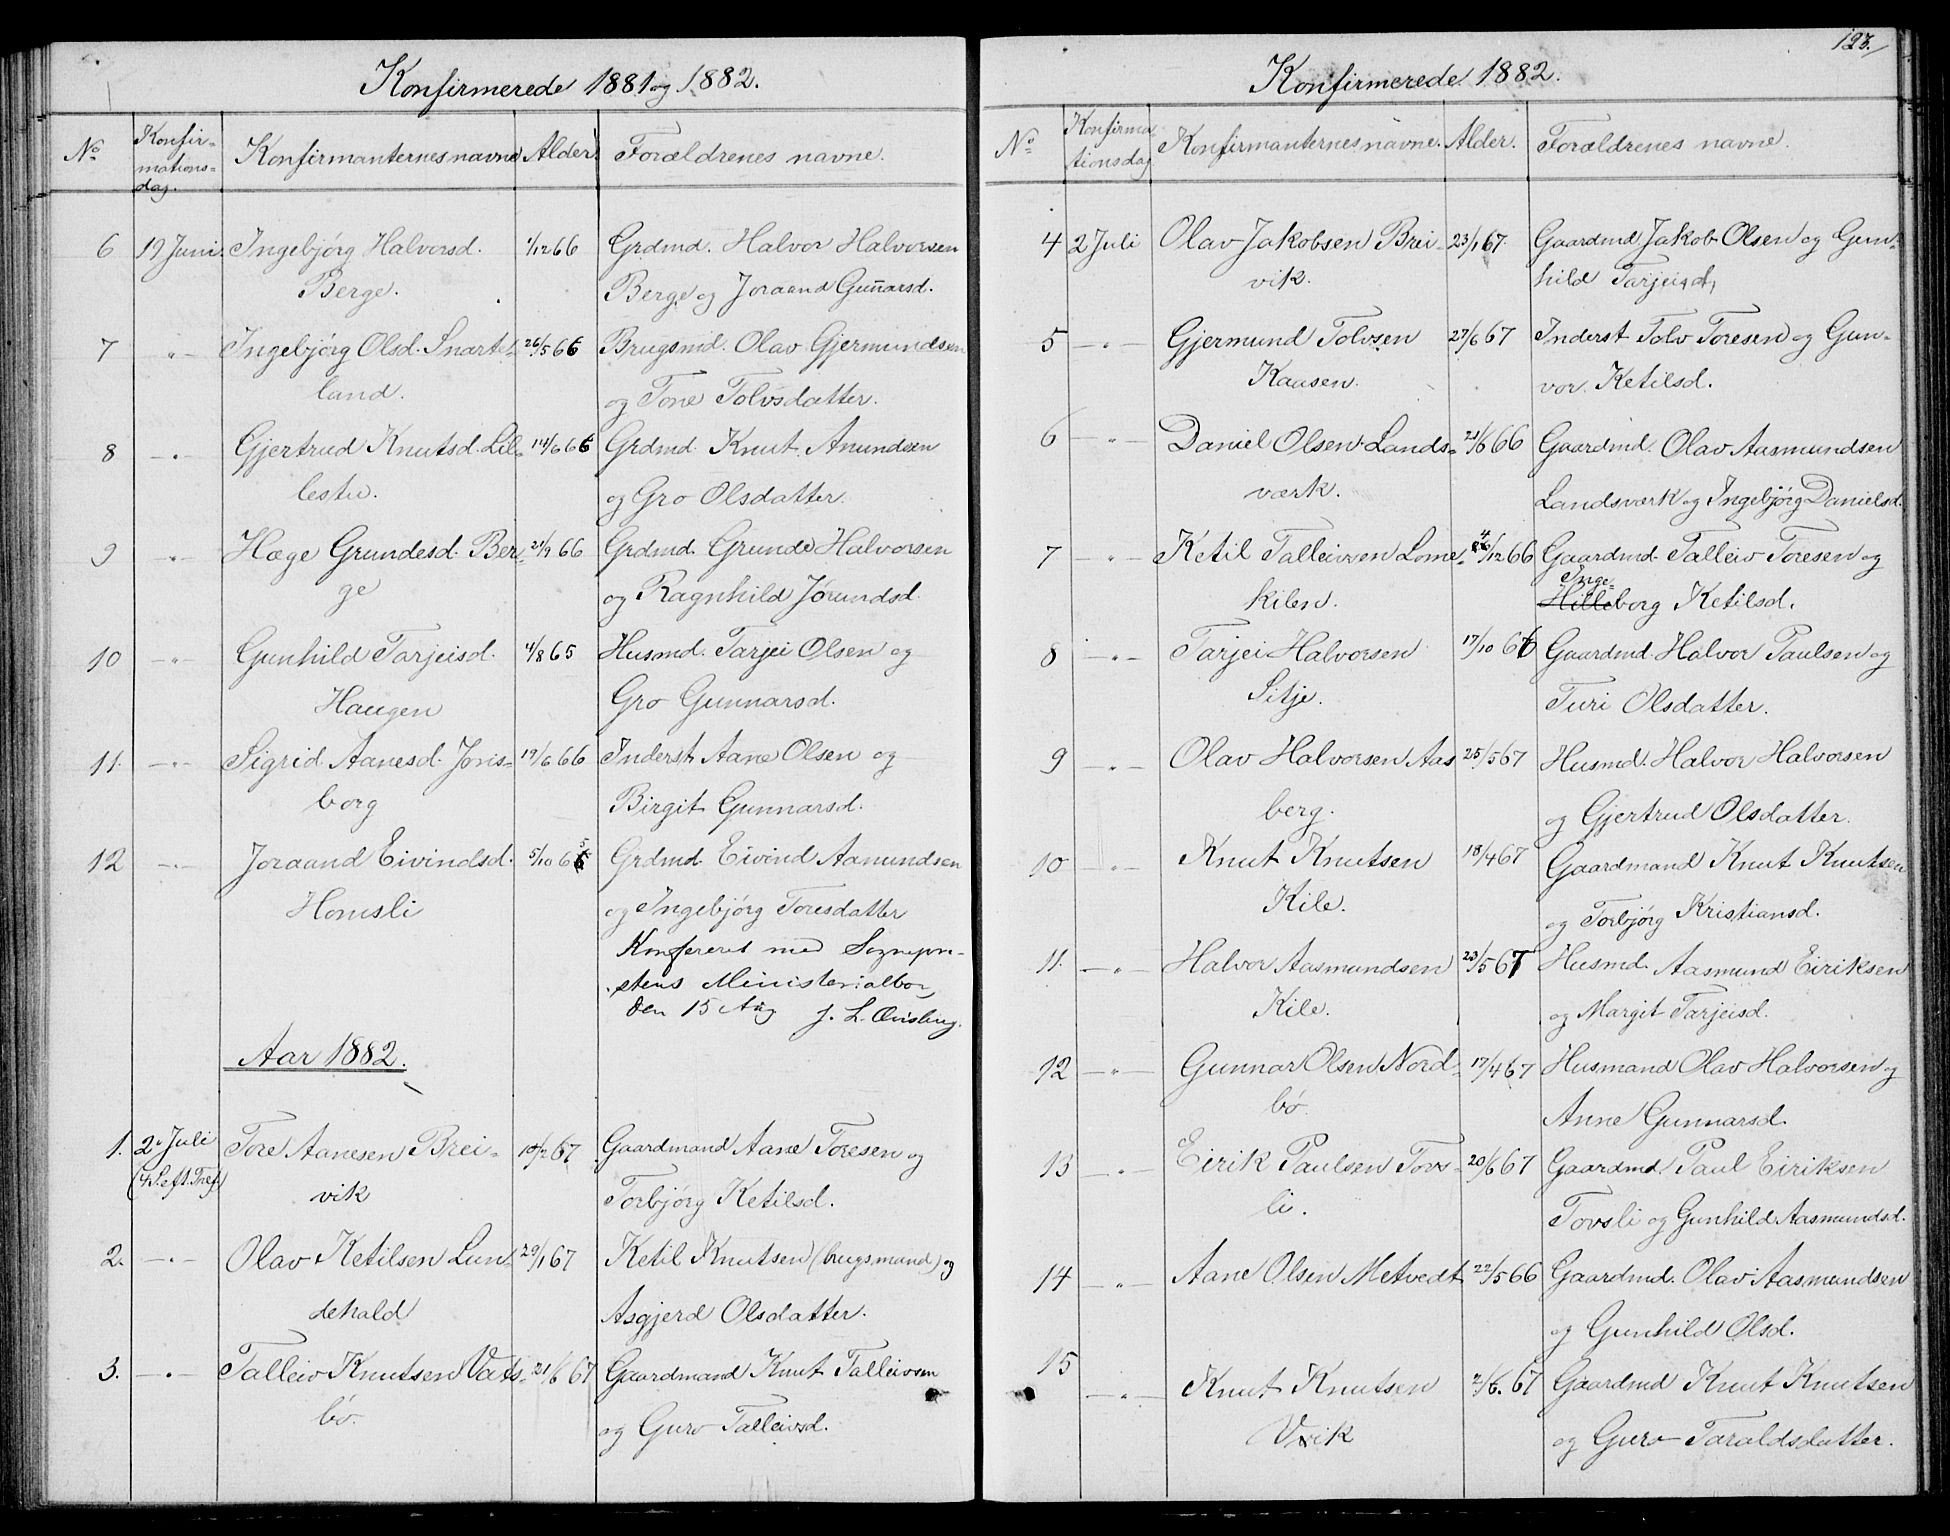 Konfirmerede 1881 og 1882.
No Konfir- Konfirmanternes navne Alder. Forældrenes navne.
mations-
dag.
6 19 Juni Ingebjörg Halvorsd. 1/12 66 Grdmd. Halvor Halvorsen
Berge. Berge og Joraand Gunnarsd.
7 -"- Ingebjörg Olsd. Snart- 26/5 66 Brugsmd. Olav Gjermundsen
land. og Tone Tolvsdatter.
8 -"- Gjertrud Knutsd. Lil- 14/6 66 Grdmd. Knut Anundsen
lestu. og Gro Olsdatter.
9 -"- Hæge Grundesd. Ber- 21/9 66 Grdmd. Grunde Halvorsen
ge og Ragnhild Jörundsd.
10 -"- Gunhild Tarjeisd. 4/8 65 Husmd. Tarjei Olsen og
Haugen Gro Gunnarsd.
11. -"- Sigrid Aanesd. Joris- 19/6 66 Inderst Aane Olsen og
borg Birgit Gunnarsd.
12 -"- Joraand Eivindsd. 5/10 65 Grdmd. Eivind Aamundsen
Homsli og Ingebjörg Toresdatter
Konfereret med Sognepre-
stens Ministerialbog,
den 15 Aug J. L. Qvisling.
Aar 1882.
1. 2. Juli Tore Aanesen Brei- 10/2 67 Gaardmand Aane Toresen og
(4 S. eft. Tref.) vik Torbjörg Ketilsd.
2. -"- Olav Ketilsen Lun- 29/1 67 Ketil Knutsen (brugsmand) og
dehald Asgjerd Olsdatter.
3. -"- Talleiv Knutsen Vats- 21/6 67 Gaardmand Knut Talleivsen
bö. og Guro Talleivsd.
123.
Konfirmerede 1882.
No Konfirma- Konfirmanternes navne. Alder. Forældrenes navne.
tionsdag
4 2 Juli Olav Jakobsen Brei- 23/1 67. Gaardmd. Jakob Olsen og Gun-
vik. hild Tarjeisd.
5 -"- Gjermund Tolvsen 27/6 67 Inderst Tolv Toresen og Gun-
Kaasen. vor Ketilsd.
6 -"- Daniel Olsen Lands- 21/6 66 Gaardmd. Olav Aasmundsen
værk. Landsværk og Ingebjörg Danielsd.
7 -"- Ketil Talleivsen Lome- 4/12 66 Gaardmd. Talleiv Toresen og
Inge-
kilen. Hilleborg Ketilsd.
8 -"- Tarjei Halvorsen 17/10 66 Gaardmd. Halvor Paulsen og
Sitje. Turi Olsdatter.
9 -"- Olav Halvorsen Aas 25/5 67 Husmd. Halvor Halvorsen
berg. og Gjertrud Olsdatter.
10 -"- Knut Knutsen 18/4 67 Gaardmand Knut Knutsen
Kile. og Torbjörg Kristiansd.
11. -"- Halvor Aasmundsen 23/5 67 Husmd. Aasmund Eiriksen
Kile. og Margit Tarjeisd.
12 -"- Gunnar Olsen Nord- 17/4 67 Husmand Olav Halvorsen og
bö. Anne Gunnarsd.
13 -"- Eirik Paulsen Tovs- 20/6 67 Gaardmd. Paul Eiriksen
li. Tovsli og Gunhild Aasmundsd.
14 -"- Aane Olsen Metvedt 22/5 66 Gaardmd. Olav Aasmundsen
og Gunhild Olsd.
15 -"- Knut Knutsen 2/6. 67 Gaardmd Knut Knutsen
Vik og Guro Taraldsdatter.